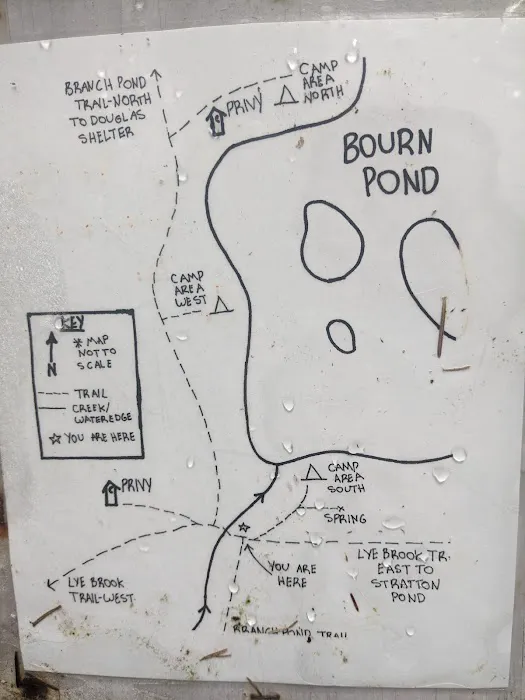 BRANCH POND
TRAIL-NORTH
TO DOUGLAS
SHELTER
PRIVY
CAMP
AREA
NORTH
BOURN
POND
CAMP
AREA
WEST
KEY
* MAP
NOT TO
SCALE
N
TRAIL
CREEK/
WATEREDGE
YOU ARE HERE
PRIVY
CAMP
AREA
SOUTH
SPRING
YOU ARE
HERE
LYE BROOK TR.
EAST TO
STRATTON
POND
LYE BROOK
TRAIL-WEST
BRANCH POND TRAIL